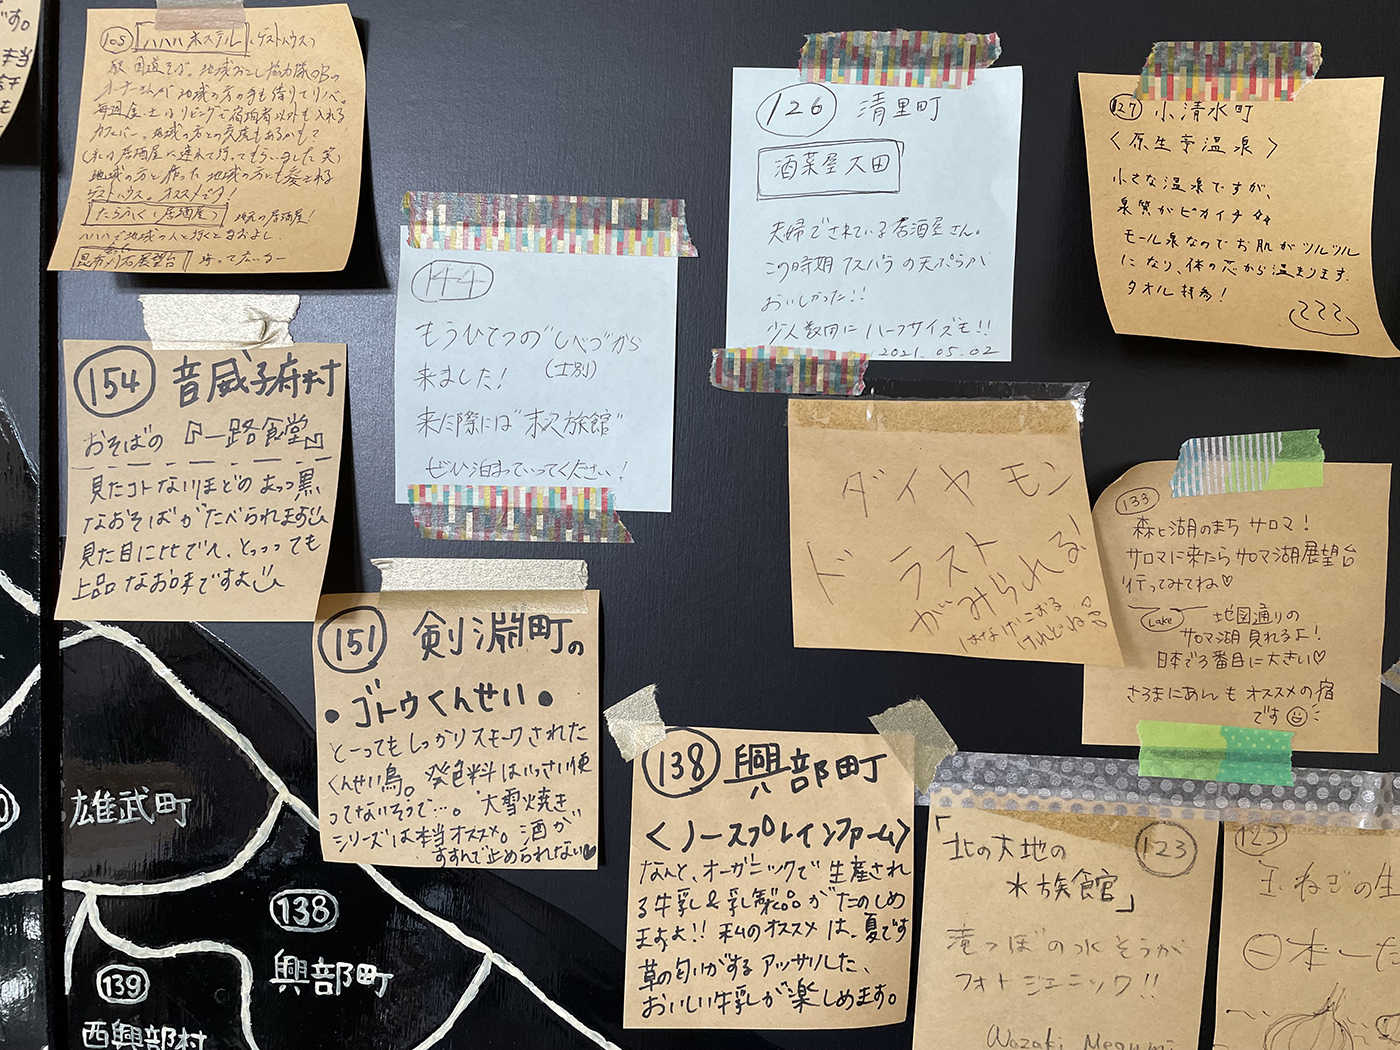 です。
本当
も
105 ハハハホステル (ゲストハウス)
駅・国道そば。地域おこし協力隊OBの
オーナーさんが地域の方の手も借りてリノベ。
毎週金・土はリビングで宿泊者以外も入れる
カフェバー。地域の方との交流もあるかも?
(私は居酒屋に連れて行ってもらいました笑)
地域の方と作った地域の方にも愛される
ゲストハウス。オススメです!
たらふく(居酒屋) 地元の居酒屋!
ハハハで地域の人と行くとなおよし。
昆布刈石展望台
126 清里町
酒菜屋大田
夫婦でされている居酒屋さん。
この時期アスパラの天ぷらが
おいしかった!!
少人数用にハーフサイズも!!
2021.05.02
127 小清水町
〈原生亭温泉〉
小さな温泉ですが、
泉質がピカイチ
モール泉なのでお肌がツルツル
になり、体の芯から温まります。
タオル持参!
144
もうひとつの"しべつ"から
来ました! (士別)
来た際には"末次旅館"
ぜひ泊まっていってください!
154 音威子府村
おそばの『一路食堂』
見たコトないほどのまっ黒
なおそばがたべられます
見た目に比べて、とっっっても
上品なお味ですよ
ダイヤモン
ドダスト
がみられる!
はなげこおる
けれどね
133
森と湖のまちサロマ!
サロマに来たらサロマ湖展望台
行ってみてね♡
Lake 地図通りの
サロマ湖見れるよ!
日本で3番目に大きい♡
さろまにあんもオススメの宿
です
151 剣淵町の
・ゴトウくんせい・
とーってもしっかりスモークされた
くんせい鳥。発色料はいっさい使
ってないそうで…。"大雪焼き"
シリーズは本当オススメ。酒が
すすんで止められない♥
138 興部町
〈ノースプレインファーム〉
なんと、オーガニックで生産され
る牛乳&乳製品がたのしめ
ますよ!! 私のオススメは、夏です
草の匂いがするアッサリした、
おいしい牛乳が楽しめます。
「北の大地の 123
水族館」
滝つぼの水そうが
フォトジェニック!!
Wazaki Megumi
123
玉ねぎの生
日本一
雄武町
138
興部町
139
西興部村